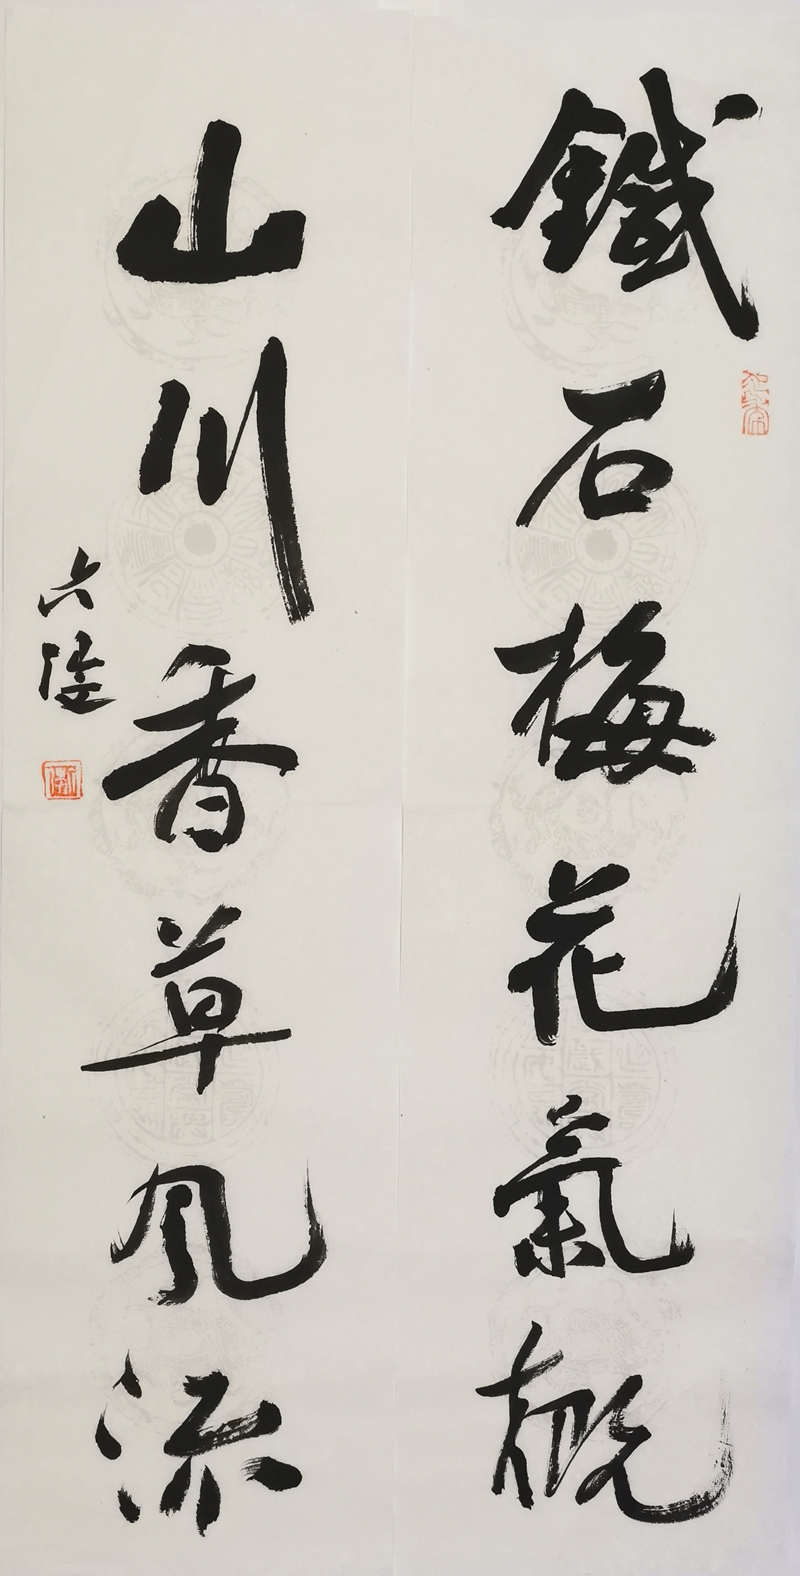 鐵石梅花氣概
山川香草風流
六陸